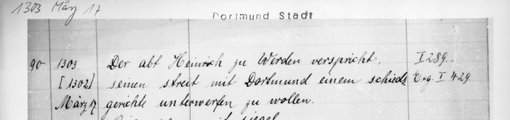 1303 März 17
Dortmund Stadt
90 1303 Der abt Heinrich zu Werden verspricht, I 289.
[1302] seinen streit mit Dortmund einem schieds
März 17 gerichte unterwerfen zu wollen. I 429